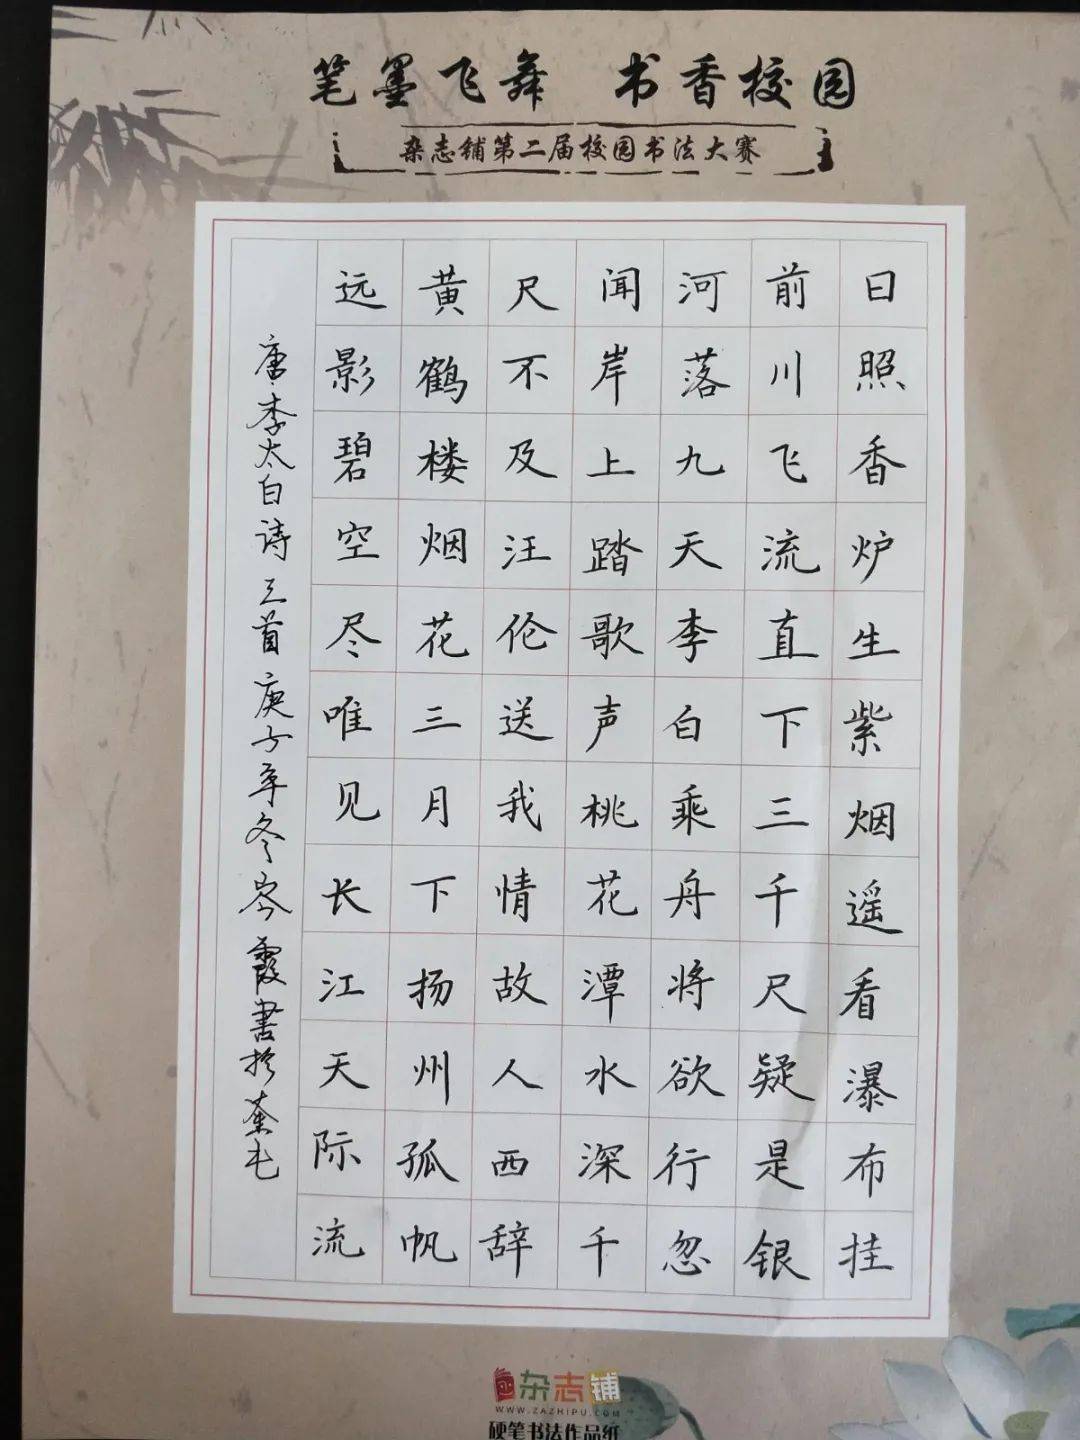 笔墨飞舞 书香校园
杂志铺第二届校园书法大赛
日照香炉生紫烟遥看瀑布挂
前川飞流直下三千尺疑是银
河落九天李白乘舟将欲行忽
闻岸上踏歌声桃花潭水深千
尺不及汪伦送我情故人西辞
黄鹤楼烟花三月下扬州孤帆
远影碧空尽唯见长江天际流
唐李太白诗三首庚子年冬岑霞書於
杂志铺
WWW.ZAZHIPU.COM
硬笔书法作品纸